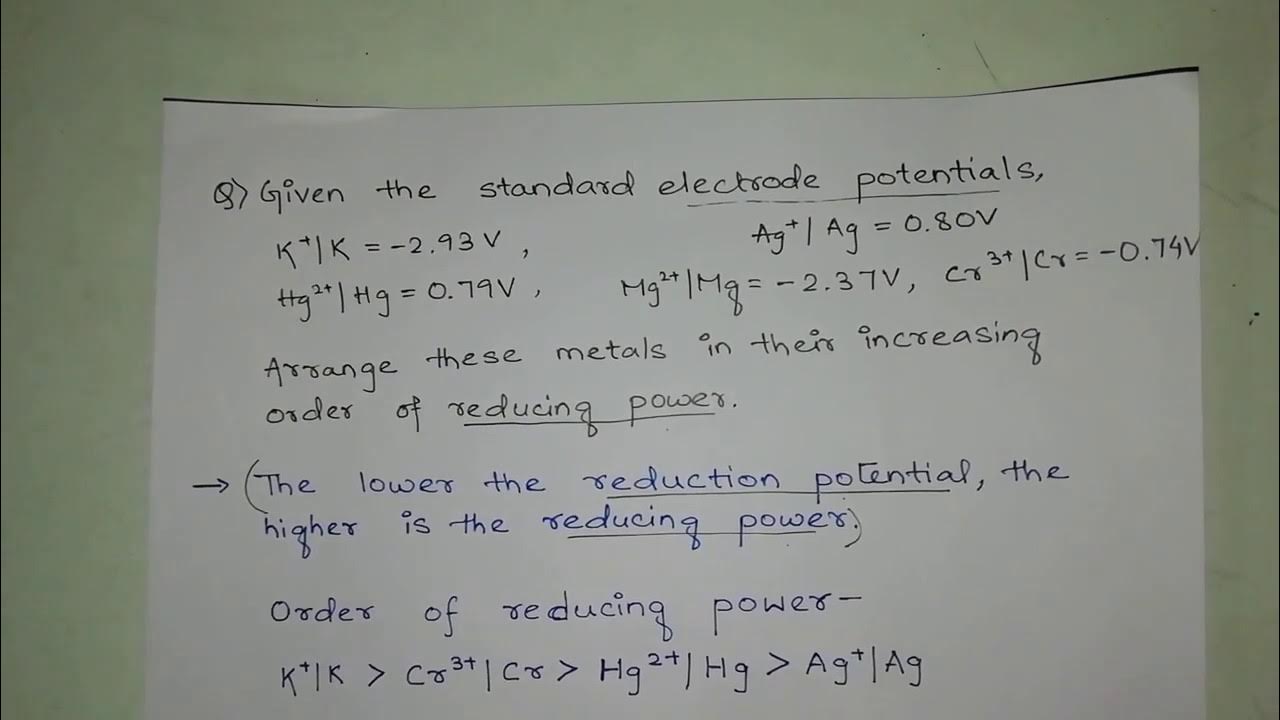 Q) Given the standard electrode potentials,
K⁺|K = -2.93 V , Ag⁺|Ag = 0.80V
Hg²⁺|Hg = 0.79V , Mg²⁺|Mg = -2.37V, Cr³⁺|Cr = -0.74V
Arrange these metals in their increasing
order of reducing power.
→ (The lower the reduction potential, the
higher is the reducing power.)
Order of reducing power-
K⁺|K > Cr³⁺|Cr > Hg²⁺|Hg > Ag⁺|Ag